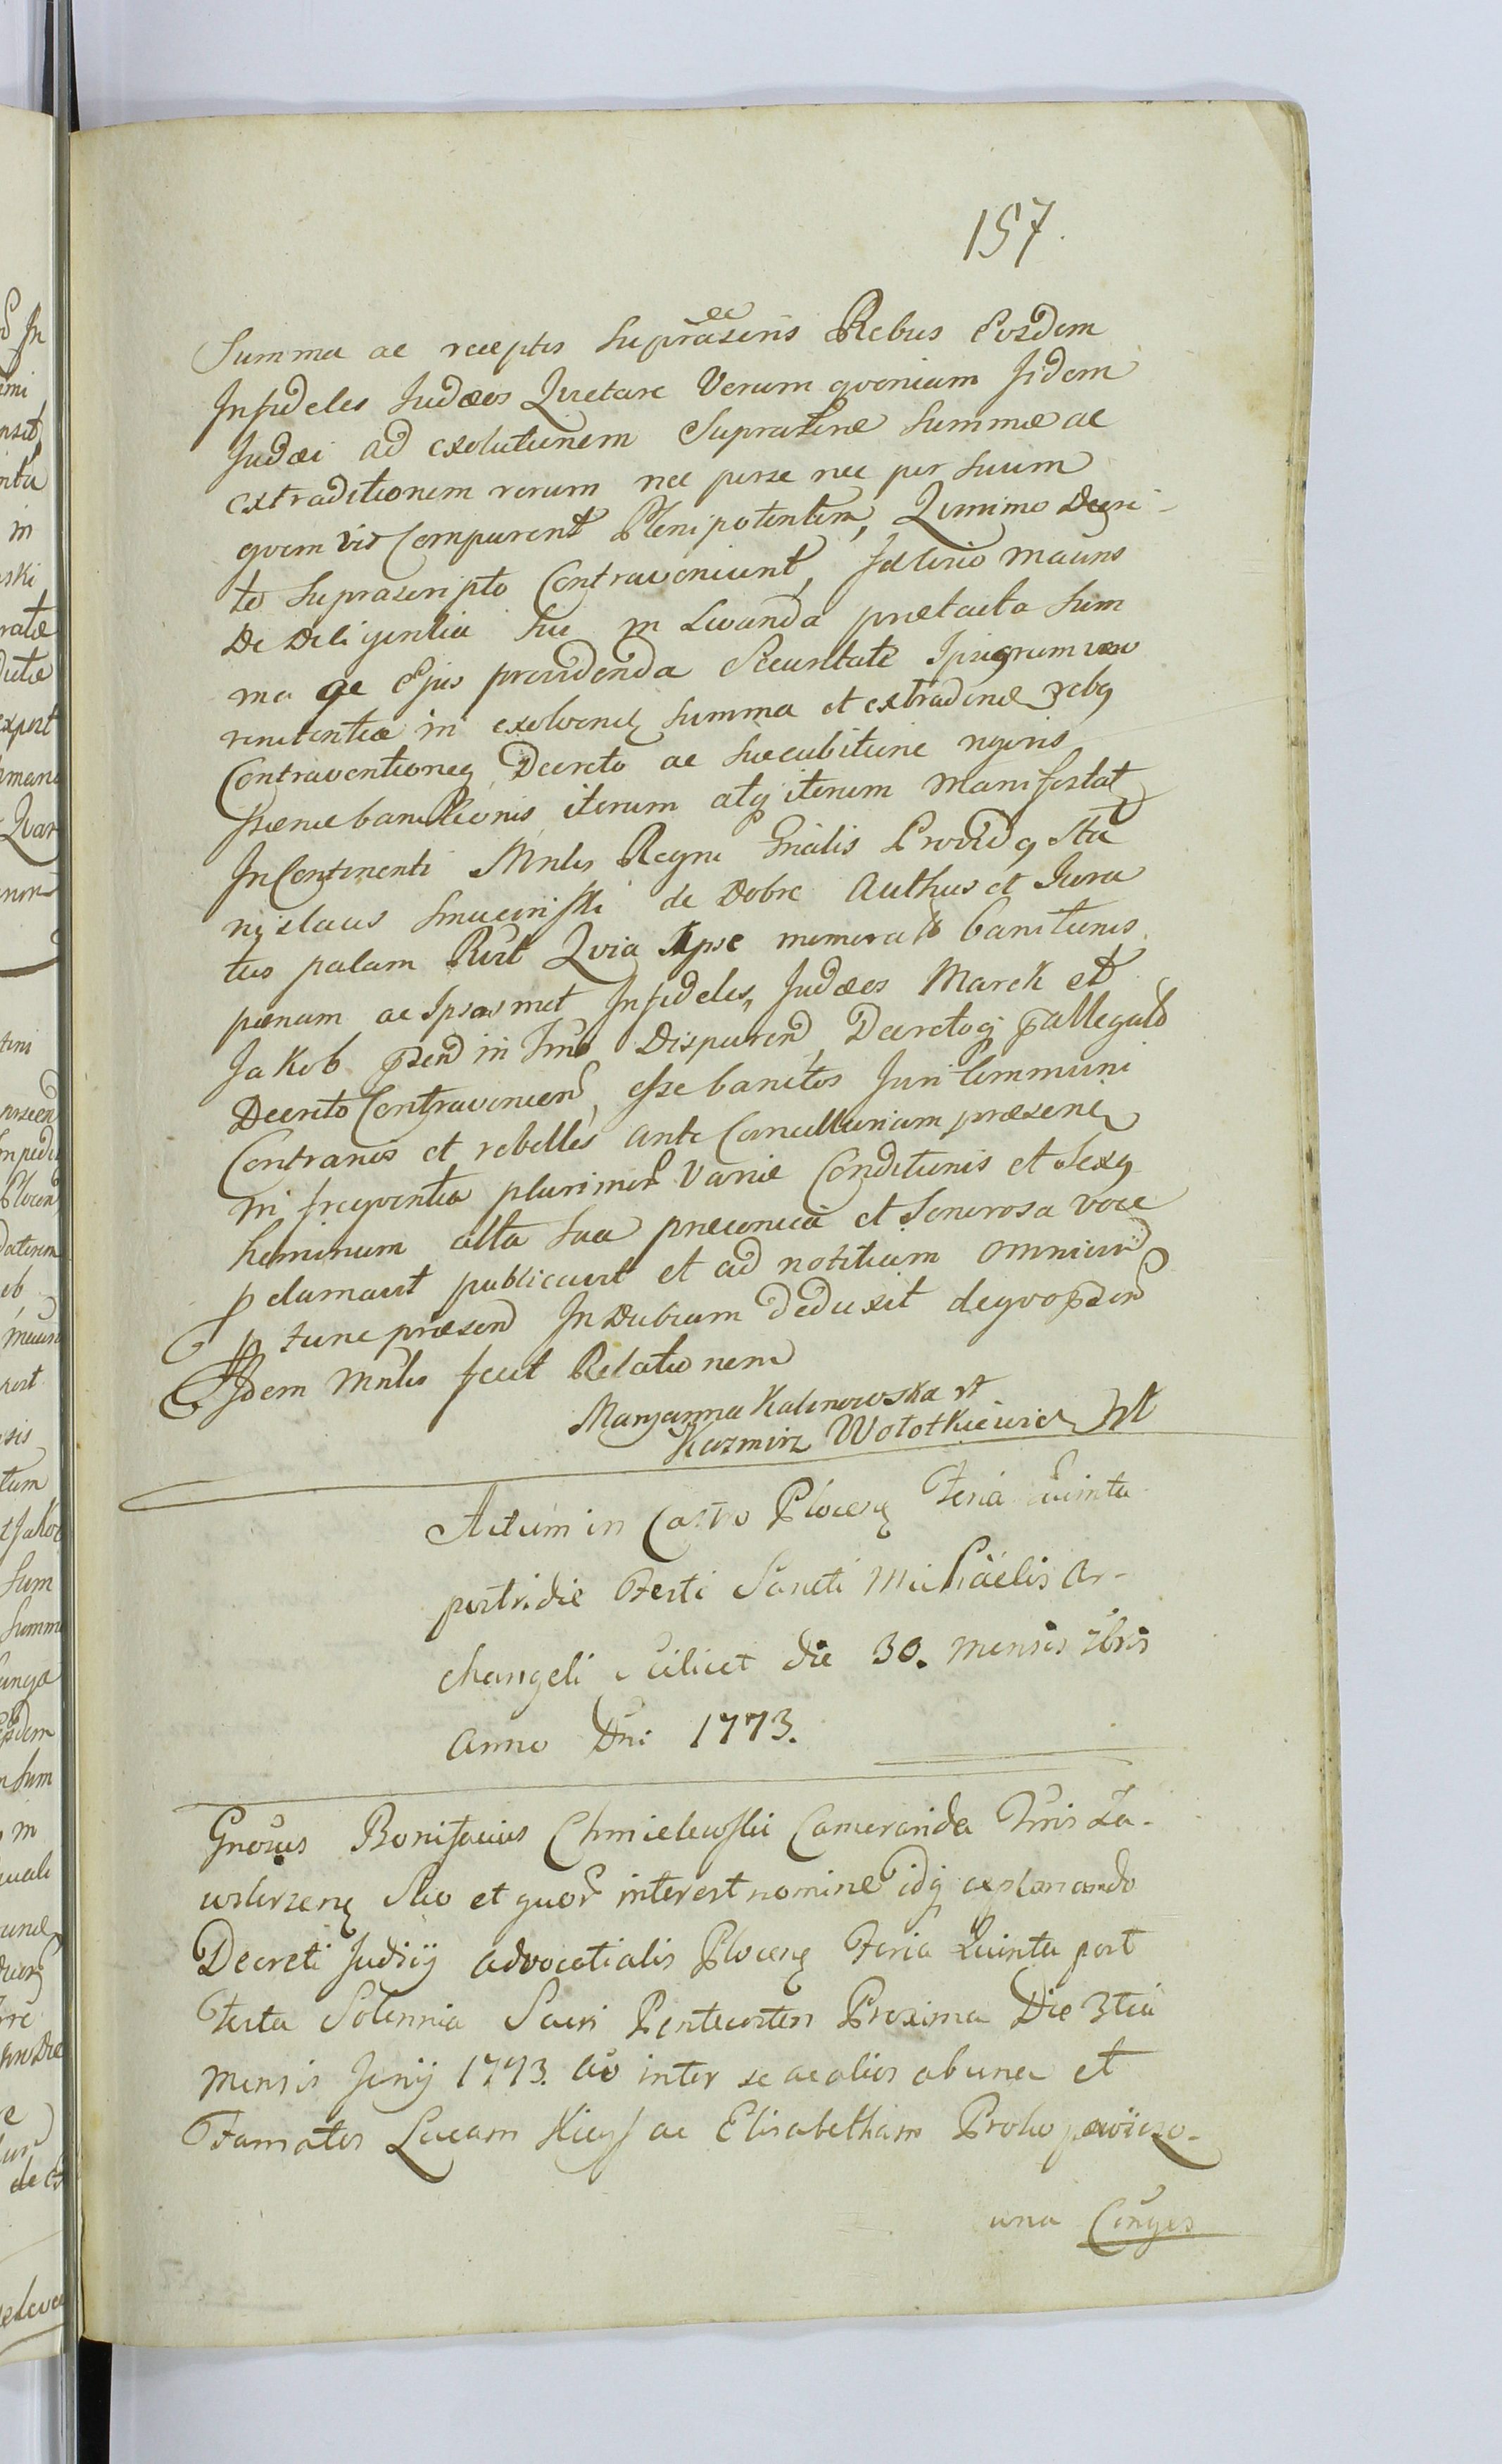 157.
Summa ac receptis supra Rebus Eosdem
Infideles Judæos Quietare Verum qvoniam Iidem
Judæi ad exolutionem Suprascrine Summæ ac
extraditionem rerum nec perse nec per Suum
qvem vis Comparent Plenipotentem, Qvinimo Decre-
to Suprascripto Contraveniunt,
De Diligentia Sua in prætacta Sum
ma ac Ejus providenda Securitate
renitentia in exolvend Summa et extradend rebq
Contraventioneq Decreto ac Succubitione
pænæ banitionis iterum atq iterum Manifestat
In Continenti Mnlis Regni Gnalis Providq Sta
nislaus de Dobre Authus et Jura
tus palam Rult Qvia Ipse memorata banitionis
pænam ac Ipsosmet Infideles Judæos Marek et
Jakob in Tmno Disparend Decretoq pallegato
Decreto Contravenien esse banitos Juri Communi
Contrarios et rebelles ante Cancellariam præsenq
in freqventia plurimor Variæ Conditionis et Sexq
hominum alta Sua præconica et Sonorosa voce
pclamavit publicavit et ad notitiam omnium
p tunc præsend Indubiam deduxit deqvo
Idem Mnlis fecit Relationem
Maryanna Kalinowska
Kazmirz Wołotkiewicz
Actum in Castro Plocenq Feria Quinta
postridie Festi Sancti Michaëlis Ar-
changeli scilicet die 30. mensis 7bris
Anno Dni 1773.
Gnosus Bonifacius Chmielewski Cameranida Tmis Za-
wskrzenq Suo et quor interest nomine idq explanando
Decreti Judicij advocatialis Plocenq Feria Quinta post
Festa Solennia Sacri Pentecostes Proxima Die 3tia
Mensis Junij 1773. Ao inter se ac alios ab una et
Famatos Lucam ac Elisabetham
una Conges